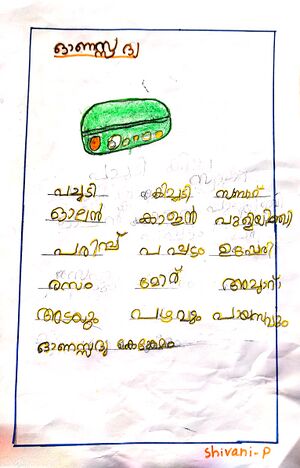 ഓണസദ്യ
പച്ചടി കിച്ചടി സമ്പാർ
ഓലൻ കാളൻ പുളിയിഞ്ചി
പരിമ്പ് പപ്പടം ഉപ്പേരി
രസം മോര് അച്ചാറ്
അടയും പഴവും പായസവും
ഓണസദ്യ കേങ്കേമം
Shivani-P